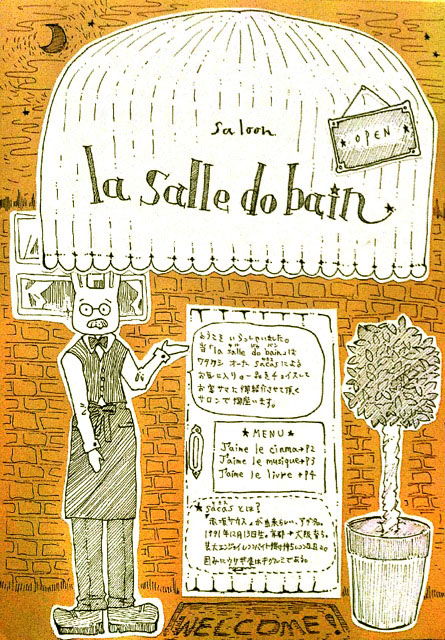 saloon
OPEN
la salle do bain
ようこそ いらっしゃいました。
当「la salle do bain」は
ワタクシ オーナー sacasによる
お気に入りの一品をチョイスして
お客サマに御紹介させて頂く
サロンで御座います。
★ MENU ★
J'aime le cinma→P2
J'aime le musique→P3
J'aime le livre →P4
★sacasとは?
1991年12月13日生。
WELCOME!